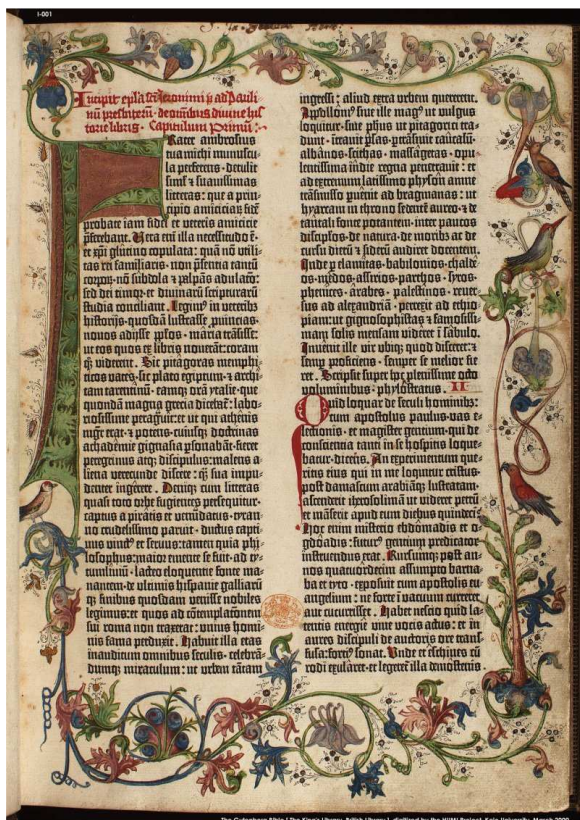 I-001
Incipit epistola sancti iheronimi ad Pauli-
nū presbiterū · de omnibus divine his-
torie libris · Capitulum primū :·
Frater ambrosius
tua michi munuscu-
la perferens · detulit
simul et suavissimas
litteras : que a prin-
cipio amiciciarū fidē
probate iam fidei et veteris amicicie
preferebant. Vera enī illa necessitudo ē ·
et xpī glutino copulata : quā nō utili-
tas rei familiaris · non pñtia tantū
corporū · nō subdola et palpās adulatō ·
sed dei timor · et divinarū scripturarū
studia conciliant. Legimꝰ in veteribꝰ
historijs · quosdā lustrasse provincias ·
novos adijsse pplos · maria trāsisse ·
ut eos quos ex libris noverāt : coram
quoqꝫ viderent. Sic pitagoras memphi-
ticos vates · sic plato egiptum · et archi-
tam tarentinū · eamqꝫ orā ytalie · que
quondā magna grecia dicebat̄ : labo-
riosissime peragravit : et ut qui athenis
mgr̄ erat · et potens · cuiusqꝫ doctrinas
achademie gignasia psonabāt · fieret
peregrinus atqꝫ discipulus : malens a-
liena verecunde discere : quā sua impu-
denter ingerere. Deniqꝫ cum litteras
quasi toto orbe fugientes persequitur ·
captus a piratis et venūdatus · tyran-
no crudelissimo paruit · ductus capti-
vus vinctꝰ et servus : tamen quia phi-
losophus : maior emente se fuit · ad ty-
tumlivium · lacteo eloquentie fonte ma-
nantem · de ultimis hispanie galliarū
qꝫ finibus · quosdam venisse nobiles
legimus : et quos ad cōtemplatōnem
sui roma non traxerat : unius homi-
nis fama perduxit. Habuit illa etas
inauditum omnibus seculis · celebrā-
dumqꝫ miraculum : ut urbem tātam
ingressi : aliud extra urbem quererent.
Appollonius sive ille magꝰ ut vulgus
loquitur · sive phūs · ut pitagorici tra-
dunt · intravit psas · ptrāsivit caucasū ·
albanos · scithas · massagetas · opu-
lentissima indie regna penetravit : et
ad extremum latissimo physon amne
trāsmisso puenit ad bragmanas : ut
hyarcam in throno sedentē aureo · et de
tantali fonte potantem · inter paucos
discipulos · de natura · de moribus ac de
cursu dierū et siderū audiret docentem.
Inde p elamitas · babilonios · chalde-
os · medos · assirios · parthos · syros ·
phenices · arabes · palestinos · rever-
sus ad alexandriā · perrexit ad ethio-
piam : ut gignosophistas et famosissi-
mam solis mensam videret ī sabulo.
Invenit ille vir ubiqꝫ quod disceret : et
semp proficiens · semper se melior fie-
ret. Scripsit super hoc plenissime octo
voluminibus · phylostratus. II
Quid loquar de seculi hominibꝰ :
cum apostolus paulus · vas e-
lectionis · et magister gentium · qui de
conscientia tanti in se hospitis loque-
batur · dicens. An experimentum que-
ritis eius qui in me loquitur cristus ·
post damascum arabiāqꝫ lustratam ·
ascenderit iherosolimā ut videret petrū
et māserit apud eum diebus quindeci ·
Hoc enim misterio ebdomadis et o-
gdoadis : futurꝰ gentium predicator
instruendus erat. Rursumqꝫ post an-
nos quatuordecim assumpto barna-
ba et tyto · exposuit cum apostolis ev-
angelium : ne forte ī vacuum curreret
aut cucurrisset. Habet nescio quid la-
tentis energie vive vocis actus : et in
aures discipuli de auctoris ore trans-
fusa : fortiꝰ sonat. Unde et eschines cū
rodi exularet · et legeret̄ illa demostenis
The Gutenberg Bible [The King's Library, British Library], digitized by the HUMI Project, Keio University, March 2000